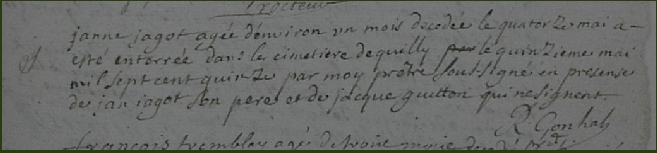 janne jagot agée denviron un mois decedée le quatorze mai a
esté enterrée dans le cimetiere de quilly le quinzieme mai
mil sept cent quinze par moy prêtre soussigné en presense
de jan jagot son pere et de jacque guitton qui ne signent.
R
françois tremblay agé de trois